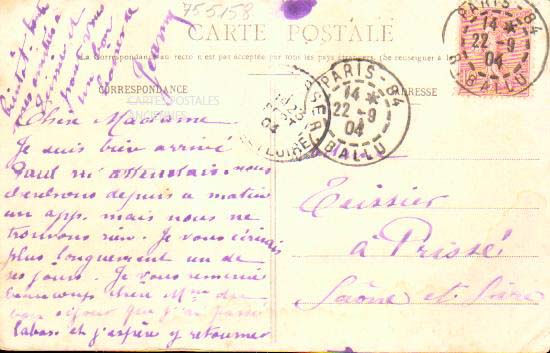 755158
CARTE POSTALE
La Correspondance au recto n'est pas acceptée par tous les pays étrangers. (Se renseigner à la
CORRESPONDANCE
CARTES POSTALES
ANCIENNES
PARIS - 84
14 *
22 - 9
04
R. BALLU
PARIS - 84
14 *
22 - 9
04
R. BALLU
ET LOIRE
Chère Madame
Je suis bien arrivé
Paul m'attendait. nous
cherchons depuis a matin
un app. mais nous ne
trouvons rien. Je vous écrirais
plus longuement un de
ses jours. Je vous remercie
beaucoup chère Mme du
bon séjour que j'ai passé
labas et j'espère y retourner
Bientôt.
un bon
Jeany
Teissier
à Prissé
Saône et Loire